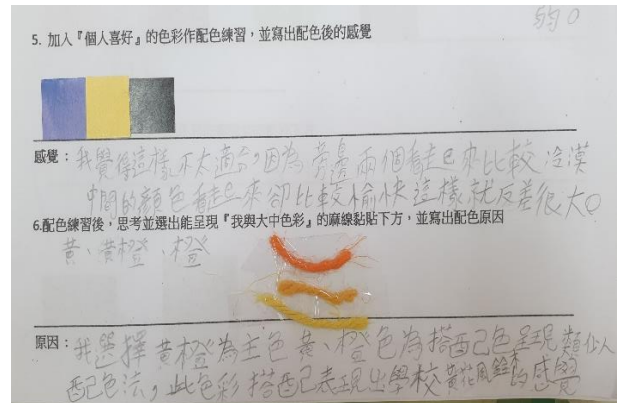 的。
5. 加入『個人喜好』的色彩作配色練習，並寫出配色後的感覺
感覺：我覺得這樣不太適合，因為旁邊兩個看起來比較冷漠
中間的顏色看起來卻比較愉快這樣就反差很大。
6.配色練習後，思考並選出能呈現『我與大中色彩』的麻線黏貼下方，並寫出配色原因
黃、黃橙、橙
原因：我選擇黃橙為主色黃、橙色為搭配色呈現類似
配色法，此色彩搭配表現出學校黃花風鈴木的感覺